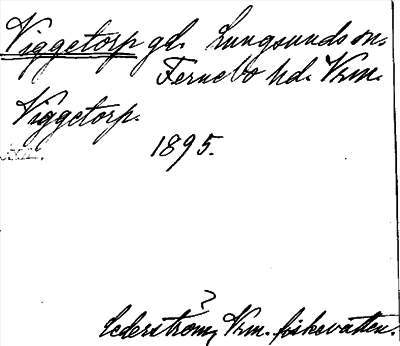 Viggetorp gd. Lungsunds sn.
Fernebo hd. Vrm.
Viggetorp.
1895.
?
Cederström, Vrm. fiskevatten.